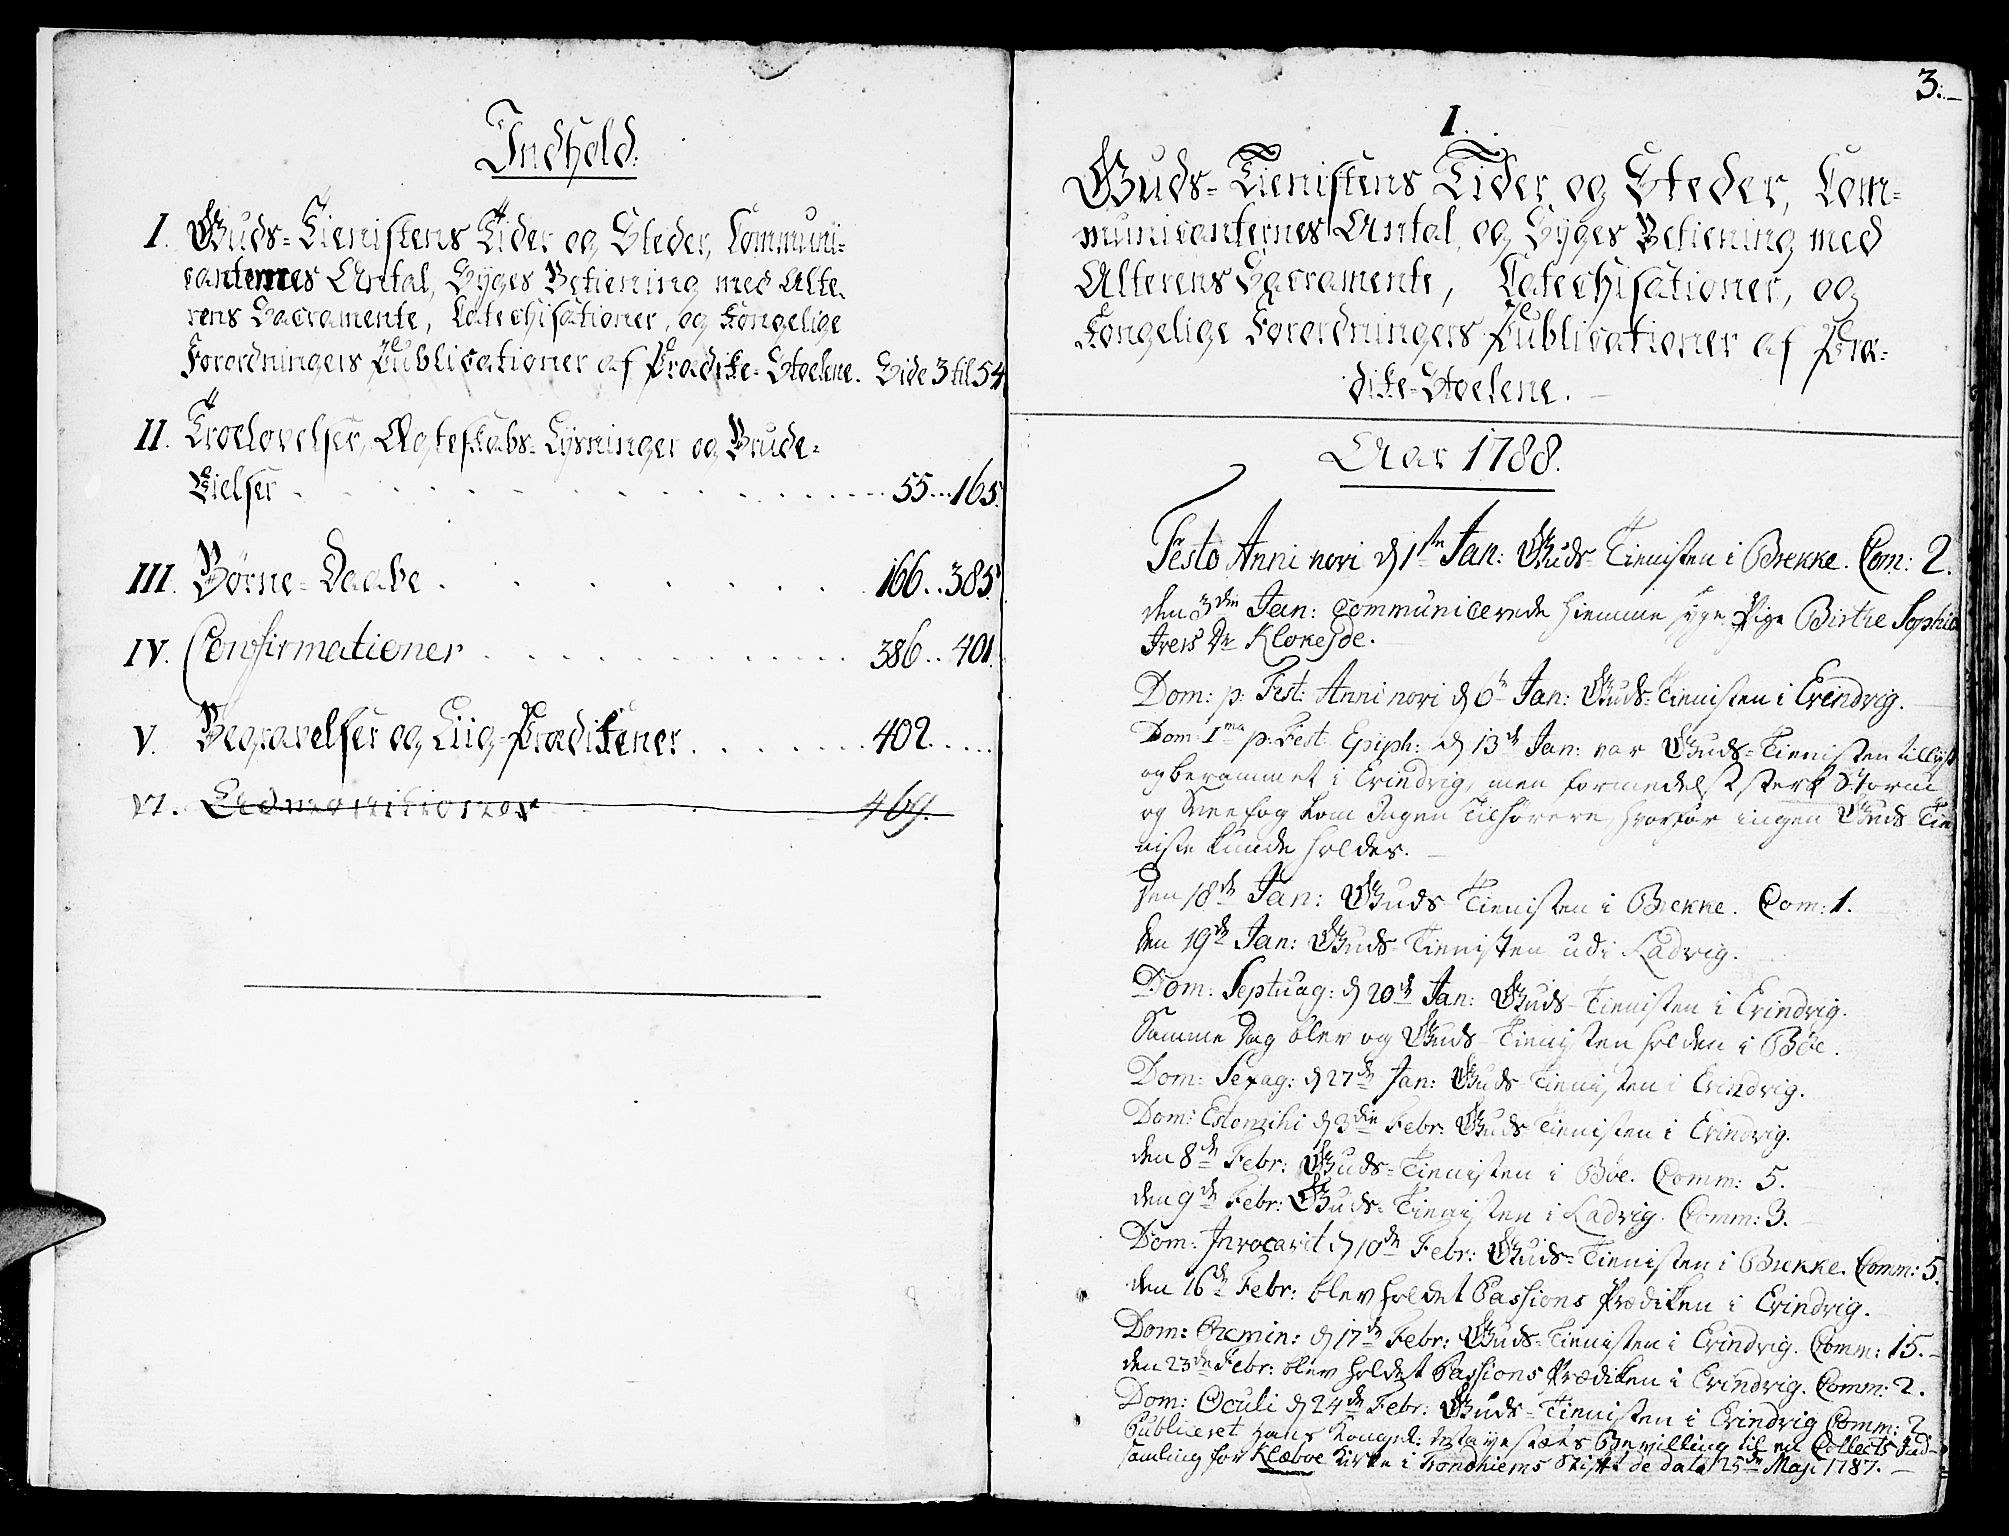 Indhold:
I. Guds-Tienistens Tider og Steder, Communi-
canternes Antal, Syges Betiening med Alte-
rens Sacramente, Catechisationer, og Kongelige
Forordningers Publicationer af Prædike-Stoelene. Side 3 til 54
II. Troelovelser, Ægteskabs-Lysninger og Brude-
Vielser . . . . . 55...165.
III. Børne-Daabe . . . . . 166..385.
IV. Confirmationer . . . . . 386..401.
V. Begravelser og Liig-Prædikener . . . . . 402.....
VI. Admonitioner 469.
3.
I.
Guds-Tienistens Tider og Steder, Com-
municanternes Antal, og Syges Betiening med
Alterens Sacramente, Catechisationer, og
Kongelige Forordningers Publicationer af Præ-
dike-Stoelene.
Aar 1788.
Festo Anni novi d 1ste Jan: Guds-Tienisten i Brekke. Com: 2.
den 3die Jan: communicerede hiemme syge Pige Birthe Sophie
Ivers Dr Klokejde.
Dom: p: Fest: Anni novi d 6te Jan: Guds-Tienisten i Evindvig.
Dom: Ima p: Fest: Epiph: d 13de Jan: var Guds-Tienisten tillyst
og berammet i Evindvig, men formedelst sterk Storm
og Sneefog kom Ingen Tilhørere, hvorfor ingen Guds-Tie-
niste kunde holdes.
Den 18de Jan: Guds-Tienisten i Brekke. Com: 1.
den 19de Jan: Guds-Tienisten udi Ladvig.
Dom: Septuag: d 20de Jan: Guds-Tienisten i Evindvig.
Samme Dag blev og Guds-Tienisten holden i Bøe.
Dom: Sexag: d 27de Jan: Guds-Tienisten i Evindvig.
Dom: Estomihi d 3die Febr: Guds-Tienisten i Evindvig.
den 8de Febr: Guds-Tienisten i Bøe. Comm: 5.
den 9de Febr: Guds-Tienisten i Ladvig. Comm: 3.
Dom: Invocavit d 10de Febr: Guds-Tienisten i Brekke. Comm: 5.
den 16de Febr: blev holdet Passions Prædiken i Evindvig.
Dom: Remin: d 17de Febr: Guds-Tienisten i Evindvig. Comm: 15.
den 23de Febr: blev holdet Passions Prædiken i Evindvig. Comm: 2.
Dom: Oculi d 24de Febr: Guds-Tienisten i Evindvig Comm: 2.
Publiceret Hans Kongel: Mayestæts Bevilling til en Collects Ind-
samling for Klæboe Kirke i Trondhiems Stift de dato 25de Maji 1787.